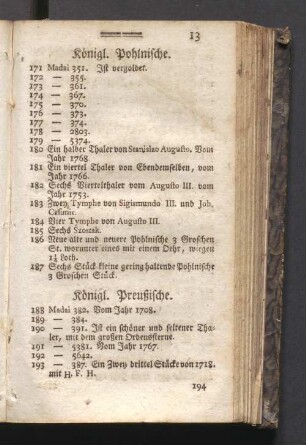 13
Königl. Pohlnische.
171 Madai 351. Ist vergoldet.
172 — 355.
173 — 361.
174 — 367.
175 — 370.
176 — 373.
177 — 374.
178 — 2803.
179 — 5374.
180 Ein halber Thaler von Stanislao Augusto. Vom
Jahr 1768
181 Ein viertel Thaler von Ebendemselben, vom
Jahr 1766.
182 Sechs Viertelthaler vom Augusto III. vom
Jahr 1753.
183 Zwey Tymphe von Sigismundo III. und Joh.
Casimir.
184 Vier Tymphe von Augusto III.
185 Sechs Szostak.
186 Neue alte und neuere Pohlnische 3 Groschen
St. worunter eines mit einem Oehr, wiegen
1¼ Loth.
187 Sechs Stück kleine gering haltende Pohlnische
3 Groschen Stück.
Königl. Preußische.
188 Madai 382. Vom Jahr 1708.
189 — 384.
190 — 391. Ist ein schöner und seltener Tha-
ler, mit dem großen Ordenssterne.
191 — 5381. Vom Jahr 1767.
192 — 5642.
193 — 387. Ein Zwey drittel Stücke von 1718.
mit H. F. H.
194